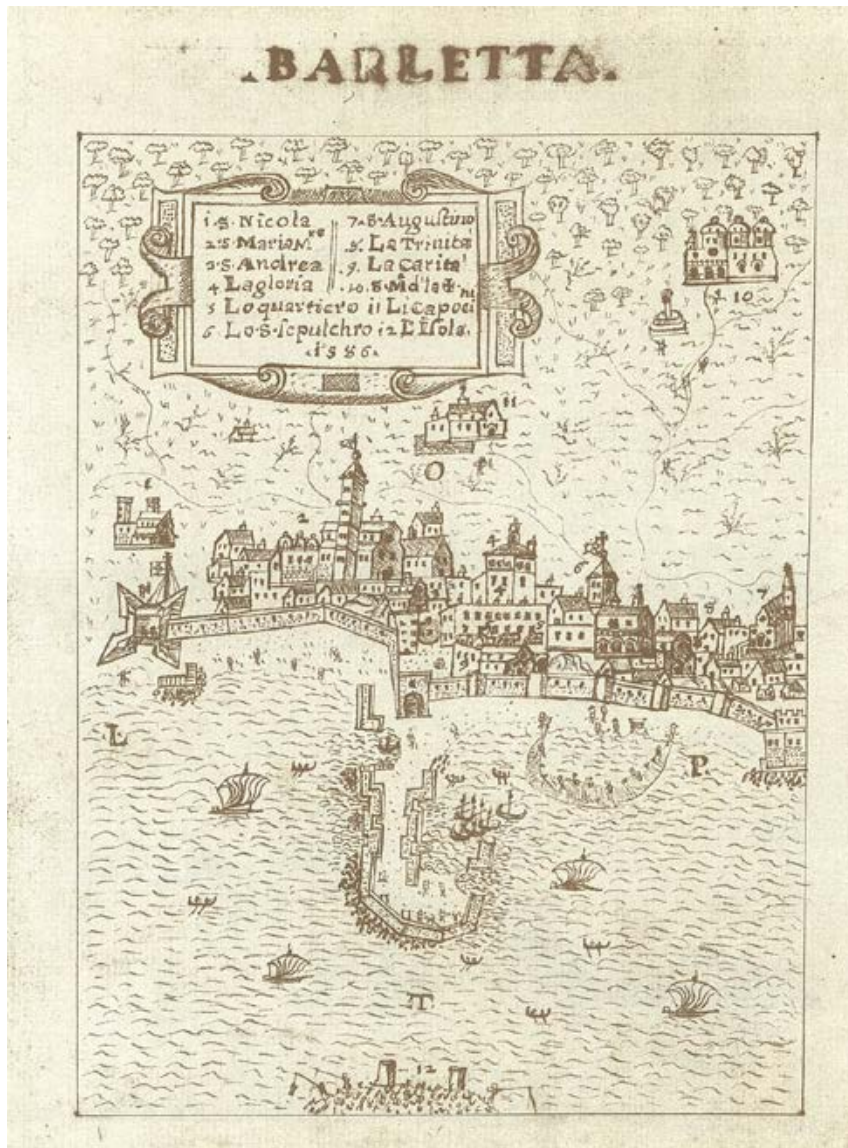 .BARLETTA.
1. S. Nicola
2. S. Maria M.re
3. S. Andrea
4 La gloria
5 Lo quartiero
6. Lo. S. sepulchro
7. S. Augustino
8. La Trinita
9. La Carita
10. S. M d la
11 Li Capoci
12 L'Isola.
.1586.
10
11
O
2
6
4
7
8
L
P.
.T.
12